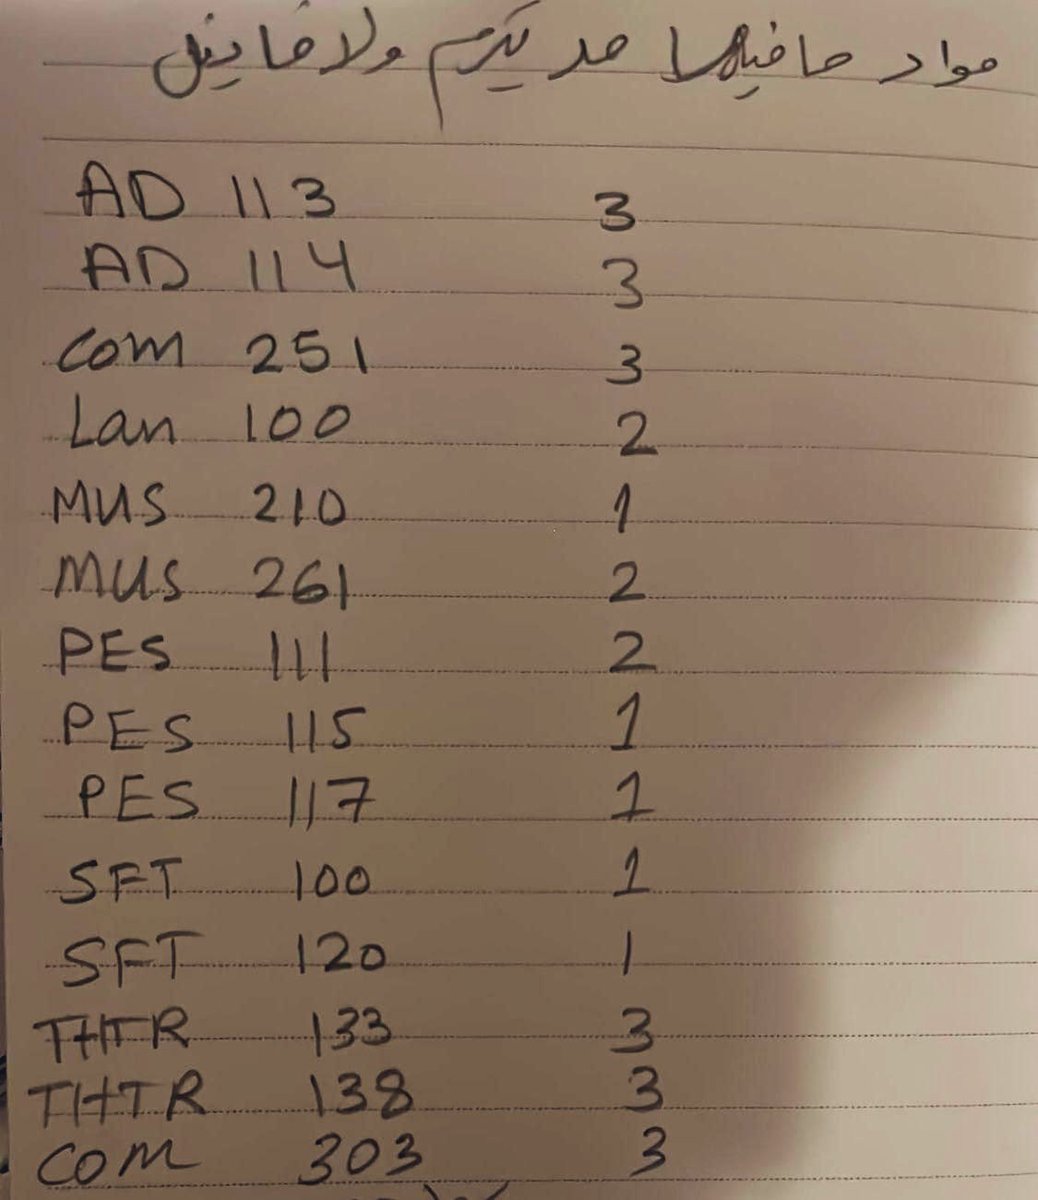 مواد ما فيها لا مد تيرم ولا فاينل
AD 113 3
AD 114 3
Com 251 3
Lan 100 2
MUS 210 1
MUS 261 2
PES 111 2
PES 115 1
PES 117 1
SFT 100 1
SFT 120 1
THTR 133 3
THTR 138 3
COM 303 3